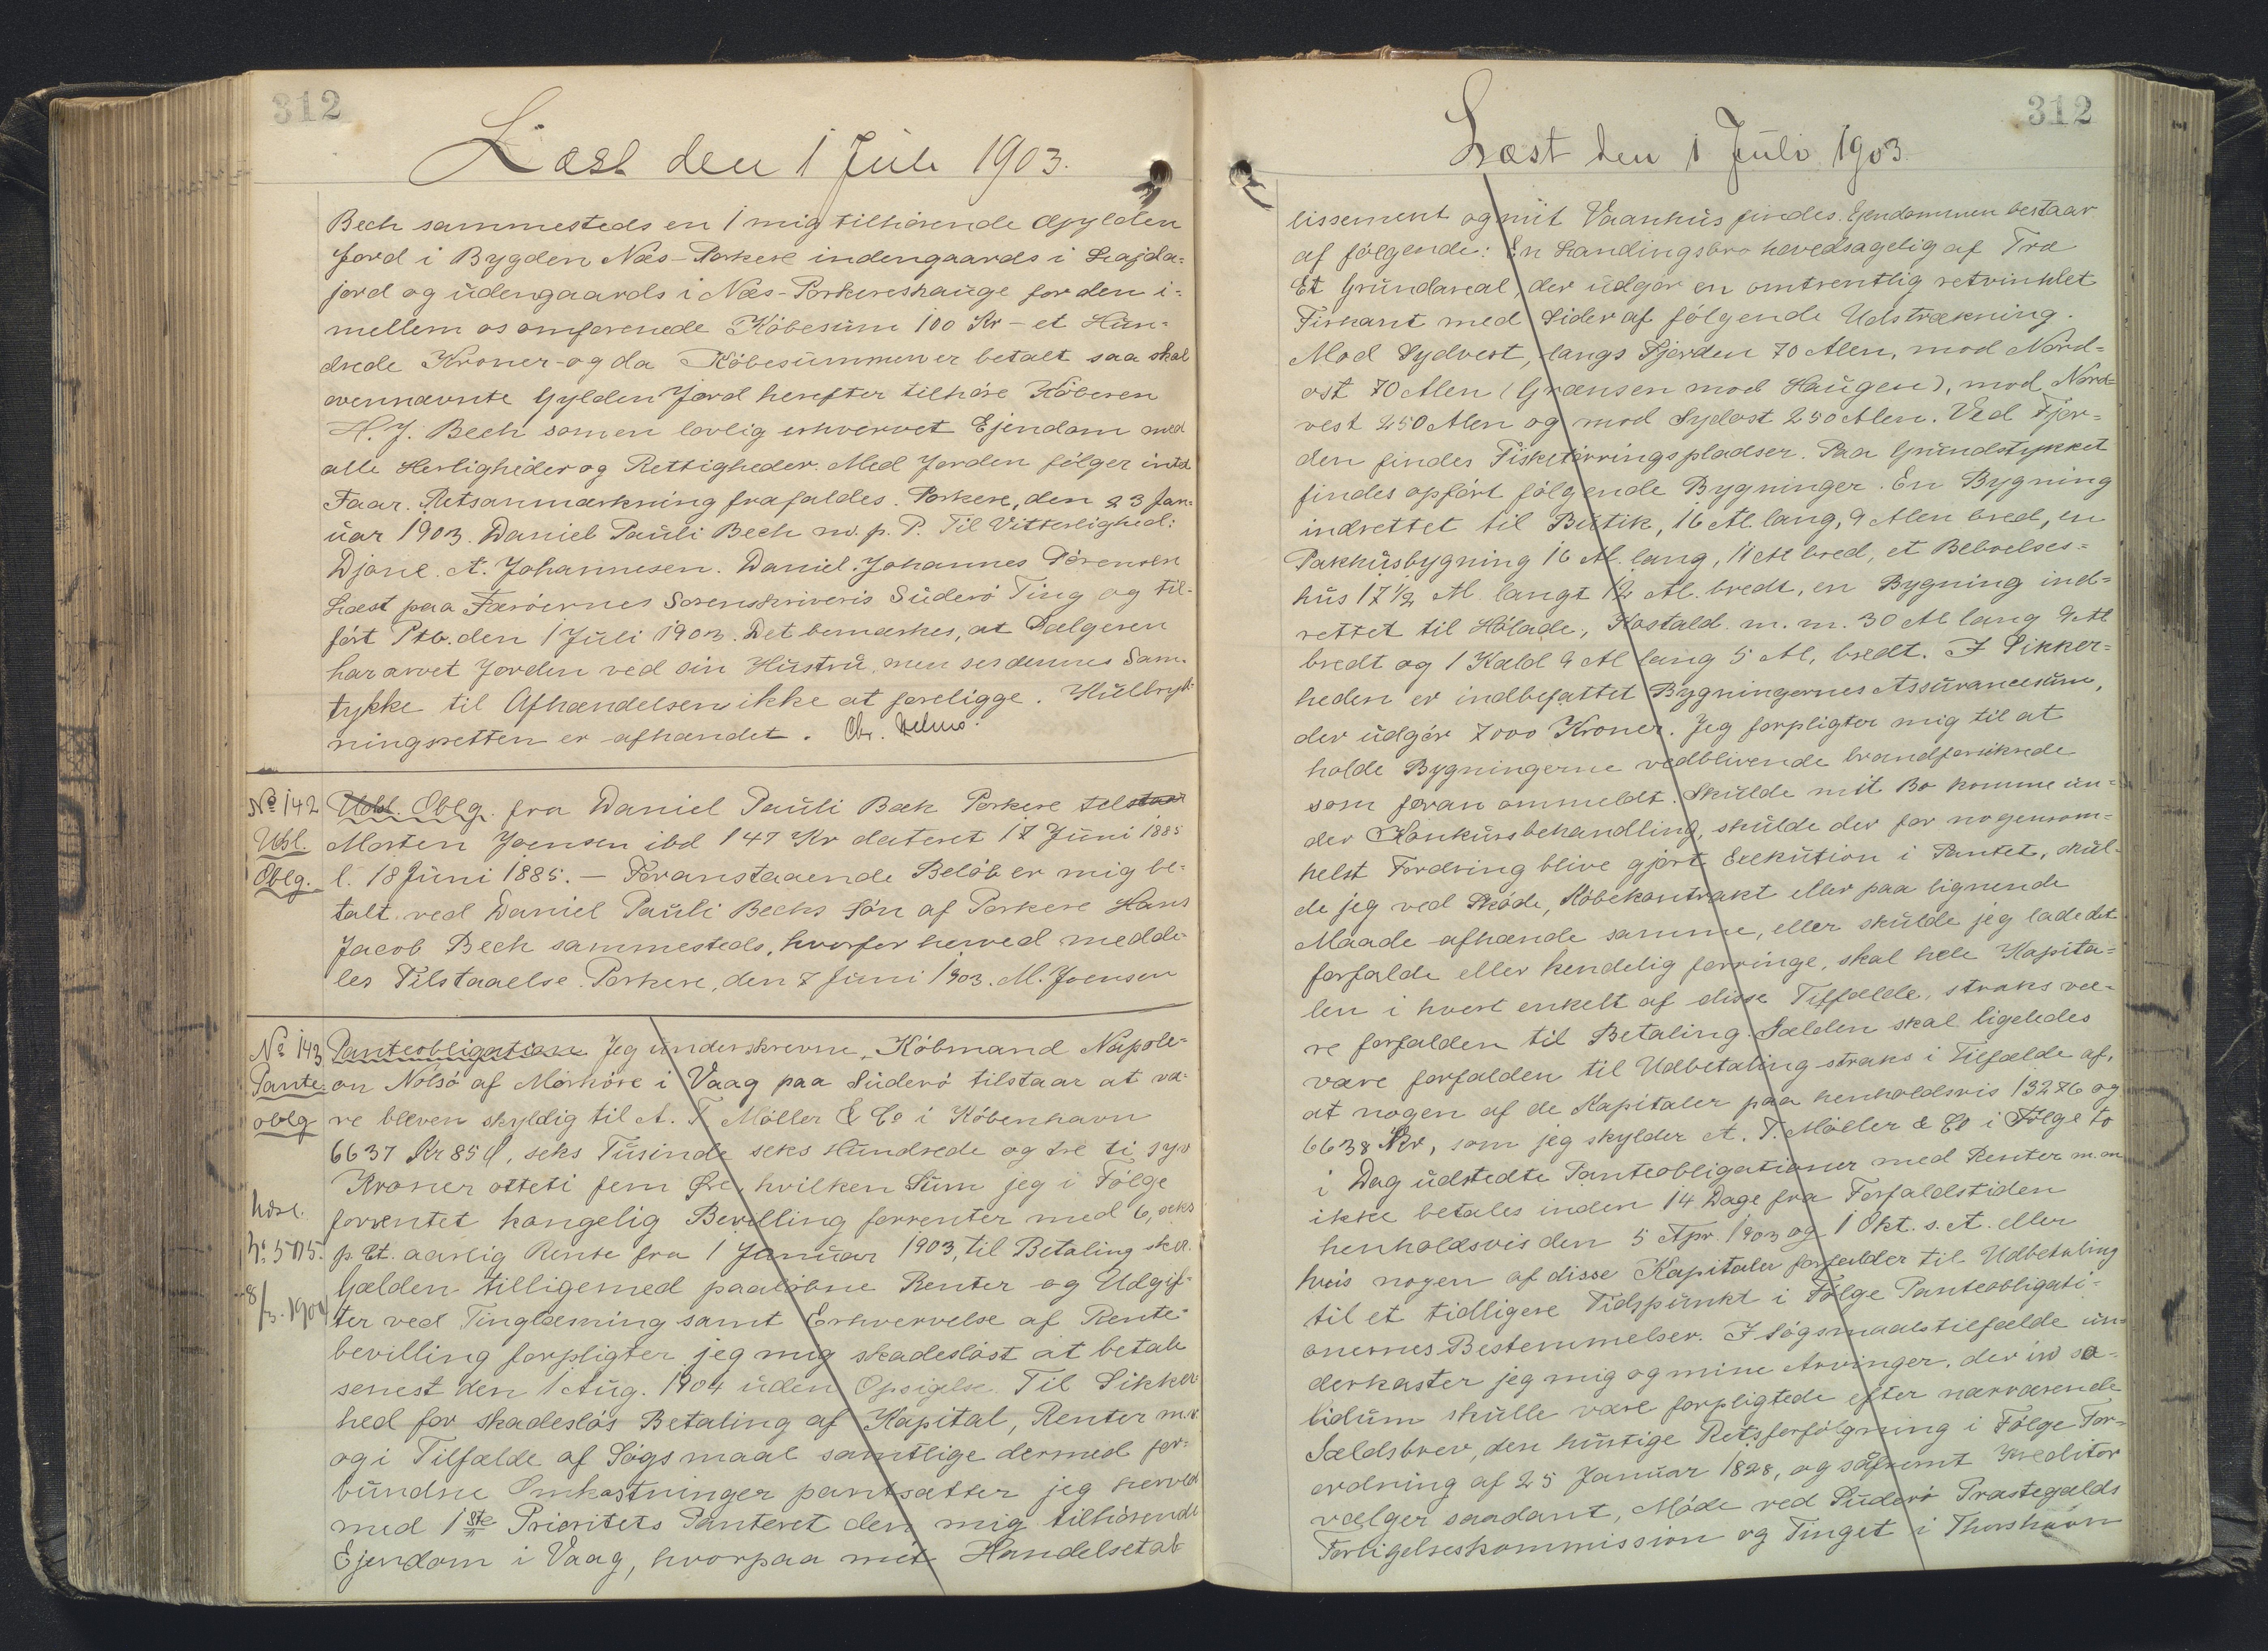 312
Læst den 1 Juli 1903.
Bech sammesteds en 1 mig tilhørende Gylden
Jord i Bygden Næs-Porkere indengaards i Lajda=
jord og udengaards i Næs-Porkereshauge for den i=
mellem os omforenede Købesum 100 Kr - et Hun=
drede Kroner - og da Købesummen er betalt saa skal
ovennævnte Gylden Jord herefter tilhøre Køberen
H. J. Bech som en lovlig erhvervet Ejendom med
alle Herligheder og Rettigheder. Med Jorden følger intet
Faar. Retsanmærkning frafaldes. Porkere, den 23 Jan=
uar 1903. Daniel Pauli Bech m. p. P. Til Vitterlighed:
Djone. A. Johannesen. Daniel. Johannes Sørensen
Læst paa Færøernes Sorenskriveris Suderø Ting og til-
ført Ptb. den 1 Juli 1903. Det bemærkes, at Sælgeren
har arvet Jorden ved sin Hustru, men ses dennes Sam-
tykke til Afhændelsen ikke at foreligge. Hulbryd-
ningsretten er afhændet.
No 142
Udsl.
Oblg.
Udsl. Oblg. fra Daniel Pauli Bech Porkere til
Morten Joensen ibd 147 Kr dateret 17 Juni 1885
l. 18 Juni 1885. - Foranstaaende Beløb er mig be-
talt ved Daniel Pauli Bechs Søn af Porkere Hans
Jacob Bech sammesteds, hvorfor herved medde-
les Tilstaaelse. Porkere, den 7 Juni 1903. M. Joensen
No 143
Pante
oblg
Panteobligation Jeg underskrevne, Købmand Napole=
on Nolsø af Mørkøre i Vaag paa Suderø tilstaar at væ-
re bleven skyldig til A. T. Møller & Co i København
6637 Kr 85 Ø, seks Tusinde seks Hundrede og tre ti syv
Kroner otteti fem Øre, hvilken Sum jeg i Følge
forventet kongelig Bevilling forrenter med 6, seks
p. Ct. aarlig Rente fra 1 Januar 1903, til Betaling sker.
Gælden tilligemed paaløbne Renter og Udgif=
ter ved Tinglæsning samt Erhvervelse af Rente=
bevilling forpligter jeg mig skadesløst at betale
senest den 1 Aug. 1904 uden Opsigelse. Til Sikker
hed for skadesløs Betaling af Kapital, Renter m.v.
og i Tilfælde af Søgsmaal samtlige dermed for=
bundne Omkostninger pantsætter jeg herved
med 1ste Prioritets Panteret den mig tilhørende
Ejendom i Vaag, hvorpaa mit Handelsetab-
312
Læst den 1 Juli 1903.
lissement og mit Vaanhus findes. Ejendommen bestaar
af følgende: En Landingsbro hovedsagelig af Træ
Et Grundareal, der udgør en omtrentlig retvinklet
Firkant med Sider af følgende Udstrækning.
Mod Sydvest, langs Fjorden 70 Alen, mod Nord=
ost 70 Alen (Grænsen mod Haugen), mod Nord=
vest 250 Alen og mod Sydost 250 Alen. Ved Fjor=
den findes Fisketørringspladser. Paa Grundstykket
findes opført følgende Bygninger. En Bygning
indrettet til Butik, 16 Al. lang, 9 Alen bred, en
Pakhusbygning 16 Al. lang, 11 Al bred, et Beboelses=
hus 17 1/2 Al. langt 12 Al. bredt, en Bygning ind=
rettet til Hølade, Kostald m. m. 30 Al lang 9 Al
bredt og 1 Kald 9 Al lang 5 Al, bredt. I Sikker=
heden er indbefattet Bygningernes Assurancesum,
der udgør 7000 Kroner. Jeg forpligter mig til at
holde Bygningerne vedblivende brandforsikrede
som foran ommeldt. Skulde mit Bo komme un=
der Konkursbehandling, skulde der for nogensom=
helst Fordring blive gjort Exekution i Pantet, skul-
de jeg ved Skøde, Købekontrakt eller paa lignende
Maade afhænde samme, eller skulde jeg lade det
forfalde eller kendelig forringe, skal hele Kapita=
len i hvert enkelt af disse Tilfælde, straks væ-
re forfalden til Betaling. Gælden skal ligeledes
være forfalden til Udbetaling straks i Tilfælde af,
at nogen af de Kapitaler paa henholdsvis 13276 og
6638 Kr, som jeg skylder A. T. Møller & Co i Følge to
i Dag udstedte Panteobligationer med Renter m.m
ikke betales inden 14 Dage fra Forfaldstiden
henholdsvis den 5 Apr. 1903 og 1 Okt. s. A. eller
hvis nogen af disse Kapitaler forfalder til Udbetaling
til et tidligere Tidspunkt i Følge Panteobligati=
onernes Bestemmelser. I Søgsmaalstilfælde un=
derkaster jeg mig og mine Arvinger, der in so=
lidum skulle være forpligtede efter nærværende
Gældsbrev, den hurtige Retsforfølgning i Følge For=
ordning af 25 Januar 1828, og såfremt Kreditor
vælger saadant, Møde ved Suderø Præstegælds
Forligelseskommission og Tinget i Thorshavn